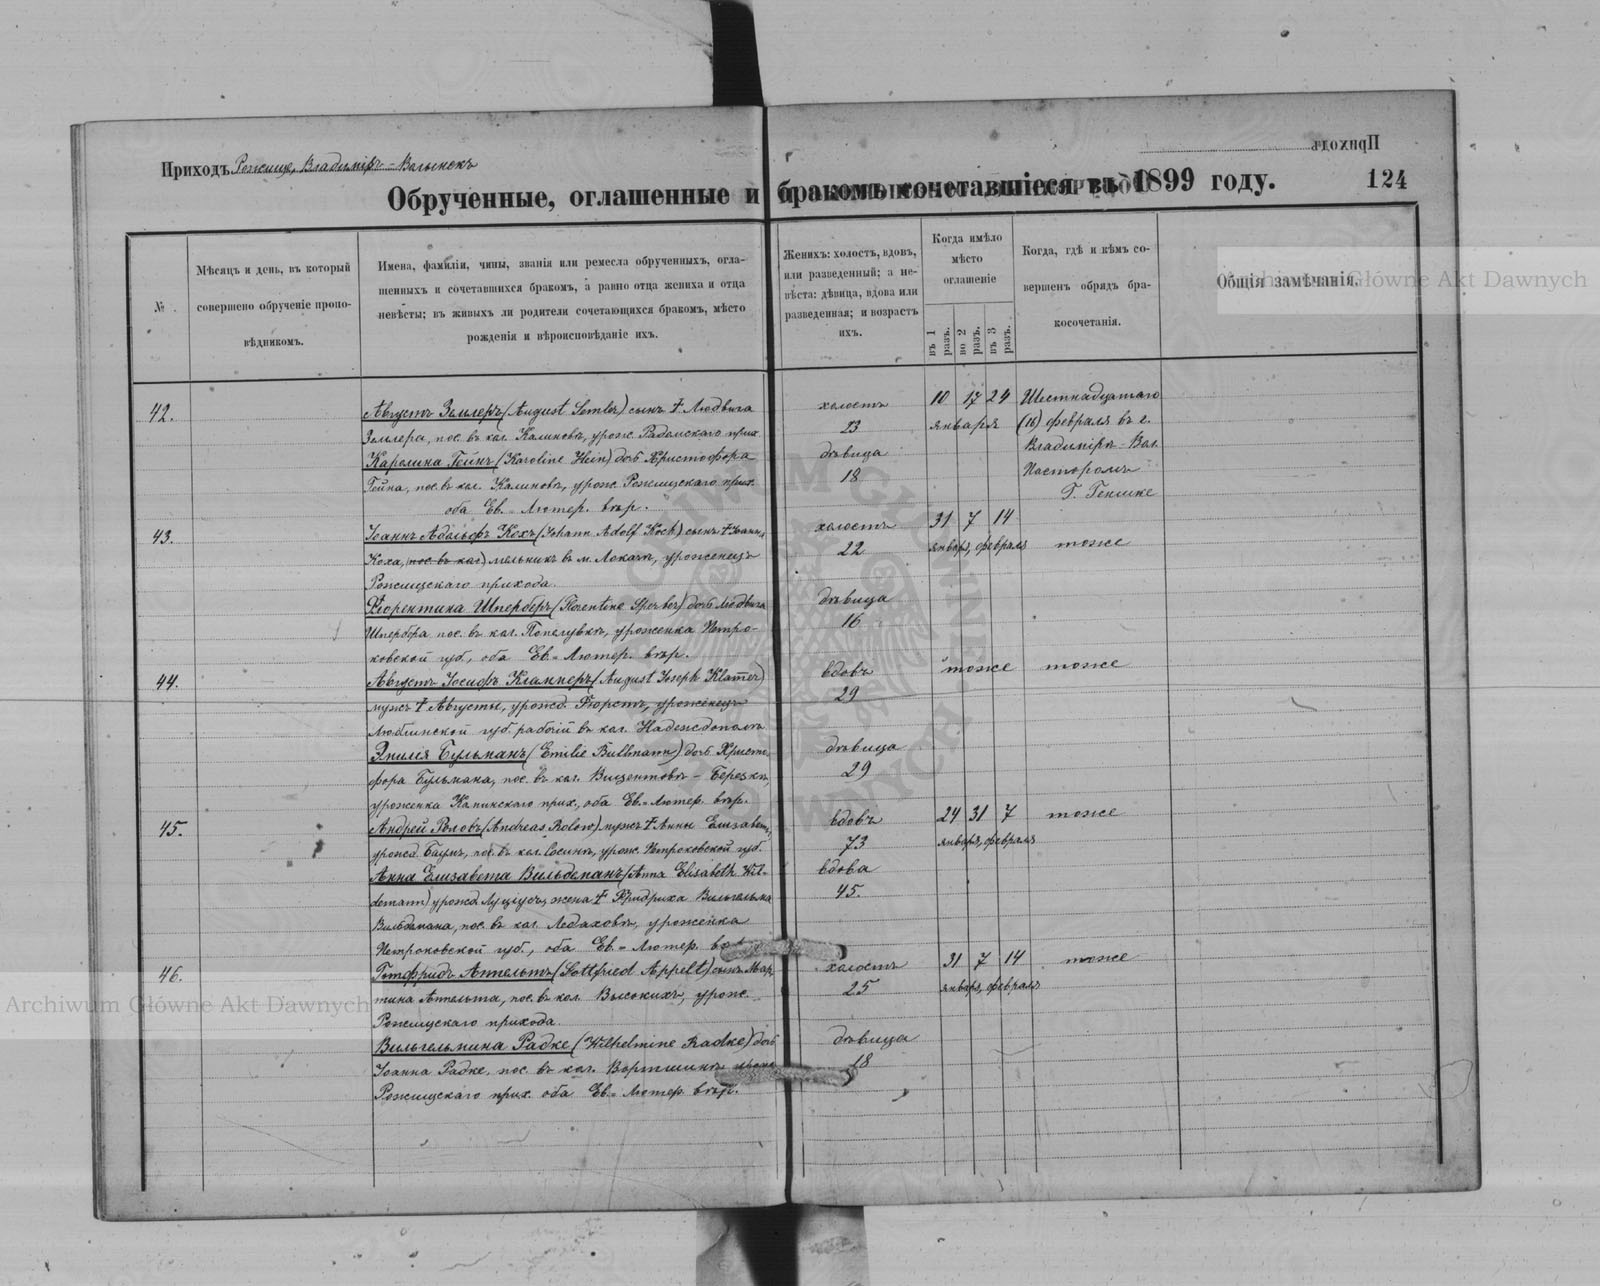 Приходъ Рожище, Владиміръ-Волынскъ
Приходъ
Обрученные, оглашенные и бракомъ сочетавшіеся въ 1899 году.
124
№
Мѣсяцъ и день, въ который
совершено обрученіе пропо-
вѣдникомъ.
Имена, фамиліи, чины, званія или ремесла обрученныхъ, огла-
шенныхъ и сочетавшихся бракомъ, а равно отца жениха и отца
невѣсты; въ живыхъ ли родители сочетающихся бракомъ, мѣсто
рожденія и вѣроисповѣданіе ихъ.
Женихъ: холостъ, вдовъ,
или разведенный; а не-
вѣста: дѣвица, вдова или
разведенная; и возрастъ
ихъ.
Когда имѣло
мѣсто
оглашеніе
въ 1 разъ.
во 2 разъ.
въ 3 разъ.
Когда, гдѣ и кѣмъ со-
вершенъ обрядъ бра-
косочетанія.
Общія замѣчанія.
42.
Августъ Землеръ (August Semler) сынъ † Людвига
Землера, пос. въ кол. Калиновъ, урож. Радомскаго прих.
Каролина Гейнъ (Karoline Hein) дочь Христофора
Гейна, пос. въ кол. Калиновъ, урож. Рожищскаго прих.
оба Ев.-Лютер. вѣр.
холостъ
23
дѣвица
18
10 17 24
января
Шестнадцатаго
(16) февраля въ г.
Владиміръ-Вол.
Пасторомъ
Г. Генике
43.
Іоаннъ Адольфъ Кохъ (Johann Adolf Koch) сынъ † Іоанна
Коха, пос. въ кол. мельникъ въ м. Локачъ, уроженецъ
Рожищскаго прихода.
Флорентина Шперберъ (Florentine Sperber) дочь Людвига
Шпербера, пос. въ кол. уроженка Петро-
ковской губ., оба Ев.-Лютер. вѣр.
холостъ
22
дѣвица
16
31 7 14
января, февраля
тоже
44.
Августъ Іосифъ Кламперъ (August Joseph Klamer)
мужъ † Августы, урожд. Фюрстъ, уроженецъ
Люблинской губ. рабочій въ кол. Надеждополъ
Эмилія Бульманъ (Emilie Bullmann) дочь Христо-
фора Бульмана, пос. въ кол. Вицентовкъ-Березкъ,
уроженка прих., оба Ев.-Лютер. вѣр.
вдовъ
29
дѣвица
29
тоже
тоже
45.
Андрей Роловъ (Andreas Rolow) мужъ † Анны Елизаветы,
урожд. Баумъ, пос. въ кол. Сосинъ, урож. Петроковской губ.
Анна Елизавета Вильдеманъ (Anna Elisabeth Wil-
demann) урожд. жена † Фридриха Вильгельма
Вильдемана, пос. въ кол. уроженка
Петроковской губ., оба Ев.-Лютер.
вдовъ
73
вдова
45.
24 31 7
января, февраля
тоже
46.
Готфридъ Аппельтъ (Gottfried Appelt) сынъ Мар-
тина Аппельта, пос. въ кол. Высокихъ, урож.
Рожищскаго прихода.
Вильгельмина Радке (Wilhelmine Radke) дочь
Іоанна Радке, пос. въ кол.
Рожищскаго прих. оба Ев.-Лютер. вѣр.
холостъ
25
дѣвица
18
31 7 14
января, февраля
тоже
Archiwum Główne Akt Dawnych
Archiwum Główne Akt Dawnych